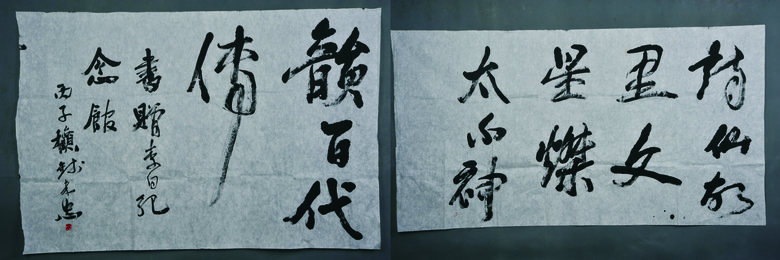 詩仙故
里文
星燦
太白神
韻百代
傳
書贈李白紀
念館
丙子